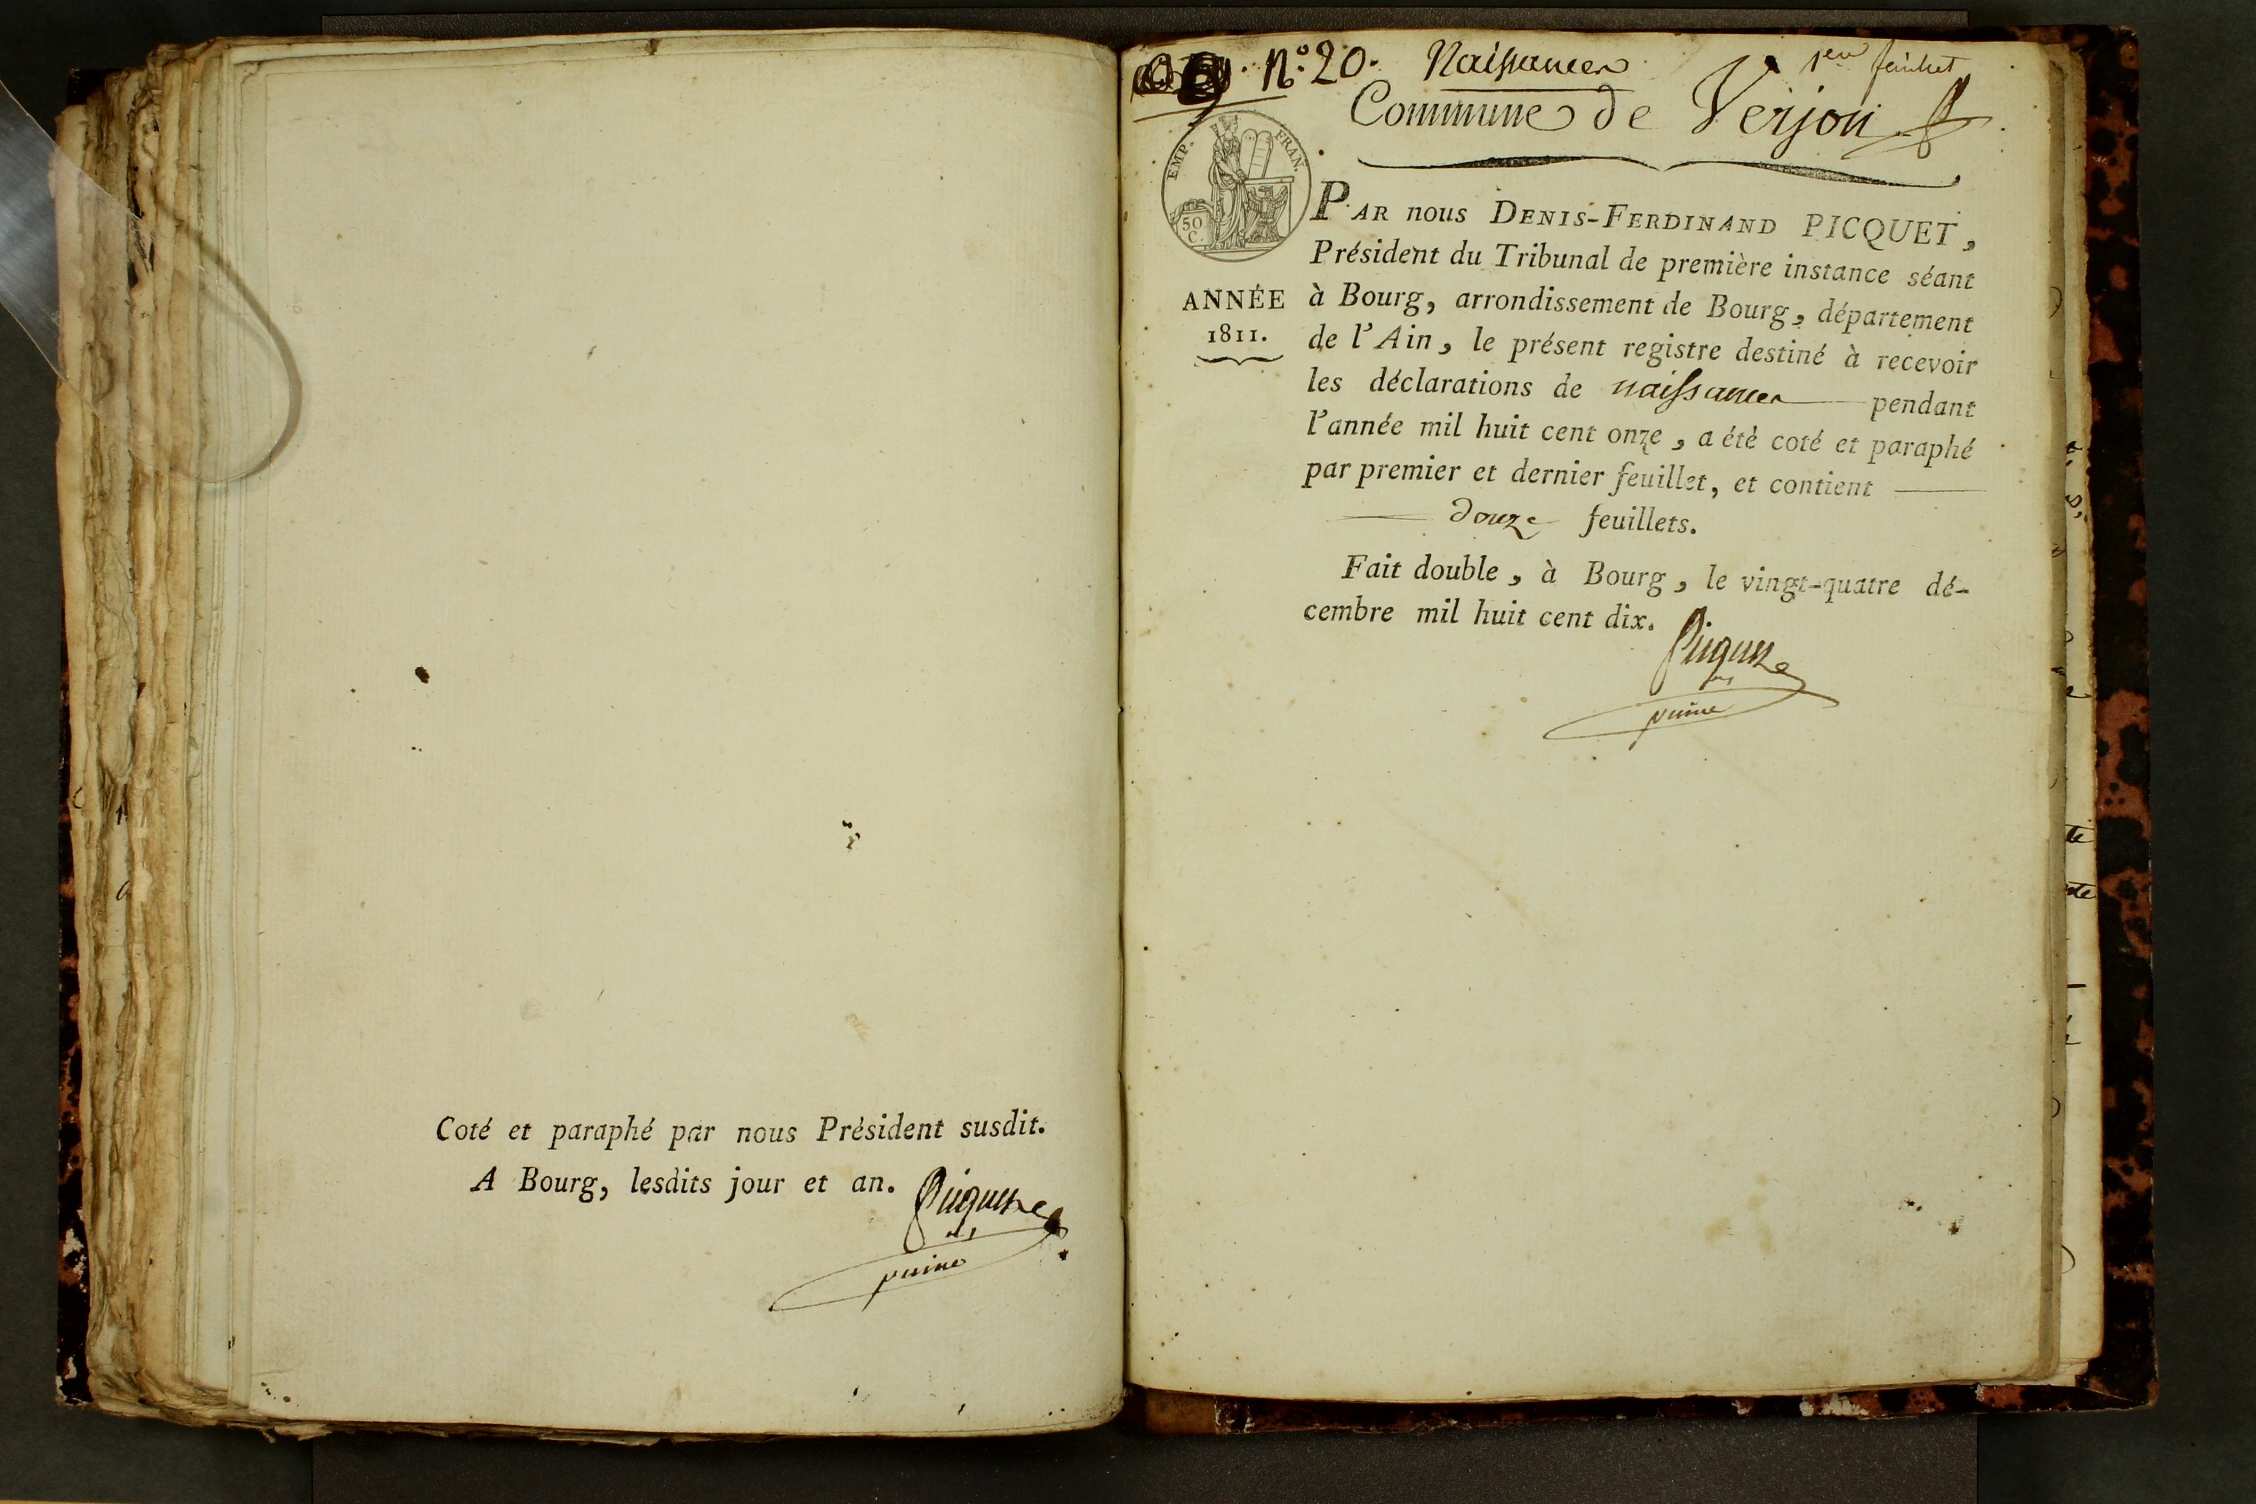 Coté et paraphé par nous Président susdit.
A Bourg, lesdits jour et an.
Picquet
N.º 20. Naissances
1er feuillet
Commune de Verjon
EMP. FRAN.
50
C.
ANNÉE
1811.
PAR nous DENIS-FERDINAND PICQUET,
Président du Tribunal de première instance séant
à Bourg, arrondissement de Bourg, département
de l'Ain, le présent registre destiné à recevoir
les déclarations de naissances pendant
l'année mil huit cent onze, a étè coté et paraphé
par premier et dernier feuillet, et contient
douze feuillets.
Fait double, à Bourg, le vingt-quatre dé-
cembre mil huit cent dix.
Picquet